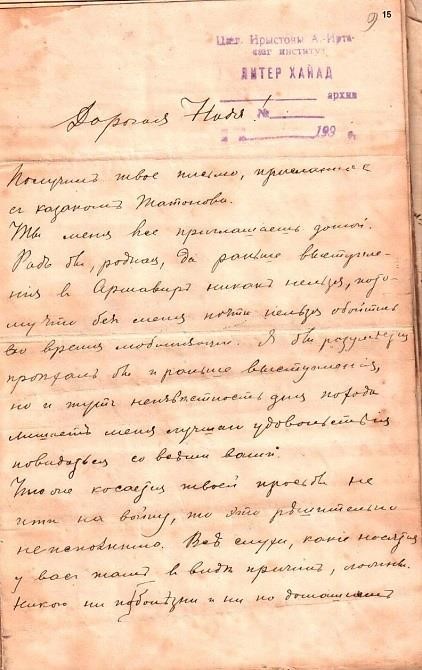 9
15
Цæг. Ирыстоны А.-Ирта-
сæг институт
ЛИТЕР ХАЙАД
архив
№
199 г.
Дорогая Надя!
Получилъ твое письмо, присланное
съ казакомъ Татонова.
Ты меня все приглашаешь домой.
Радъ бы, родная, да раньше выступле-
нія в Армавиръ никакъ нельзя, пото-
му что безъ меня почти нельзя обойтись
во время мобилизаціи. Я бы разумѣется
проѣхалъ бы и раньше выступленія,
но и тутъ неизвѣстность дня похода
лишаетъ меня лучшаго удовольствія
повидаться со всѣми вами.
Что же касается твоей просьбы не
идти на войну, то это рѣшительно
неисполнимо. Всѣ слухи, какіе носятся
у васъ тамъ в видѣ причинъ, ложны.
Никого ни по болѣзни и ни по домашнимъ